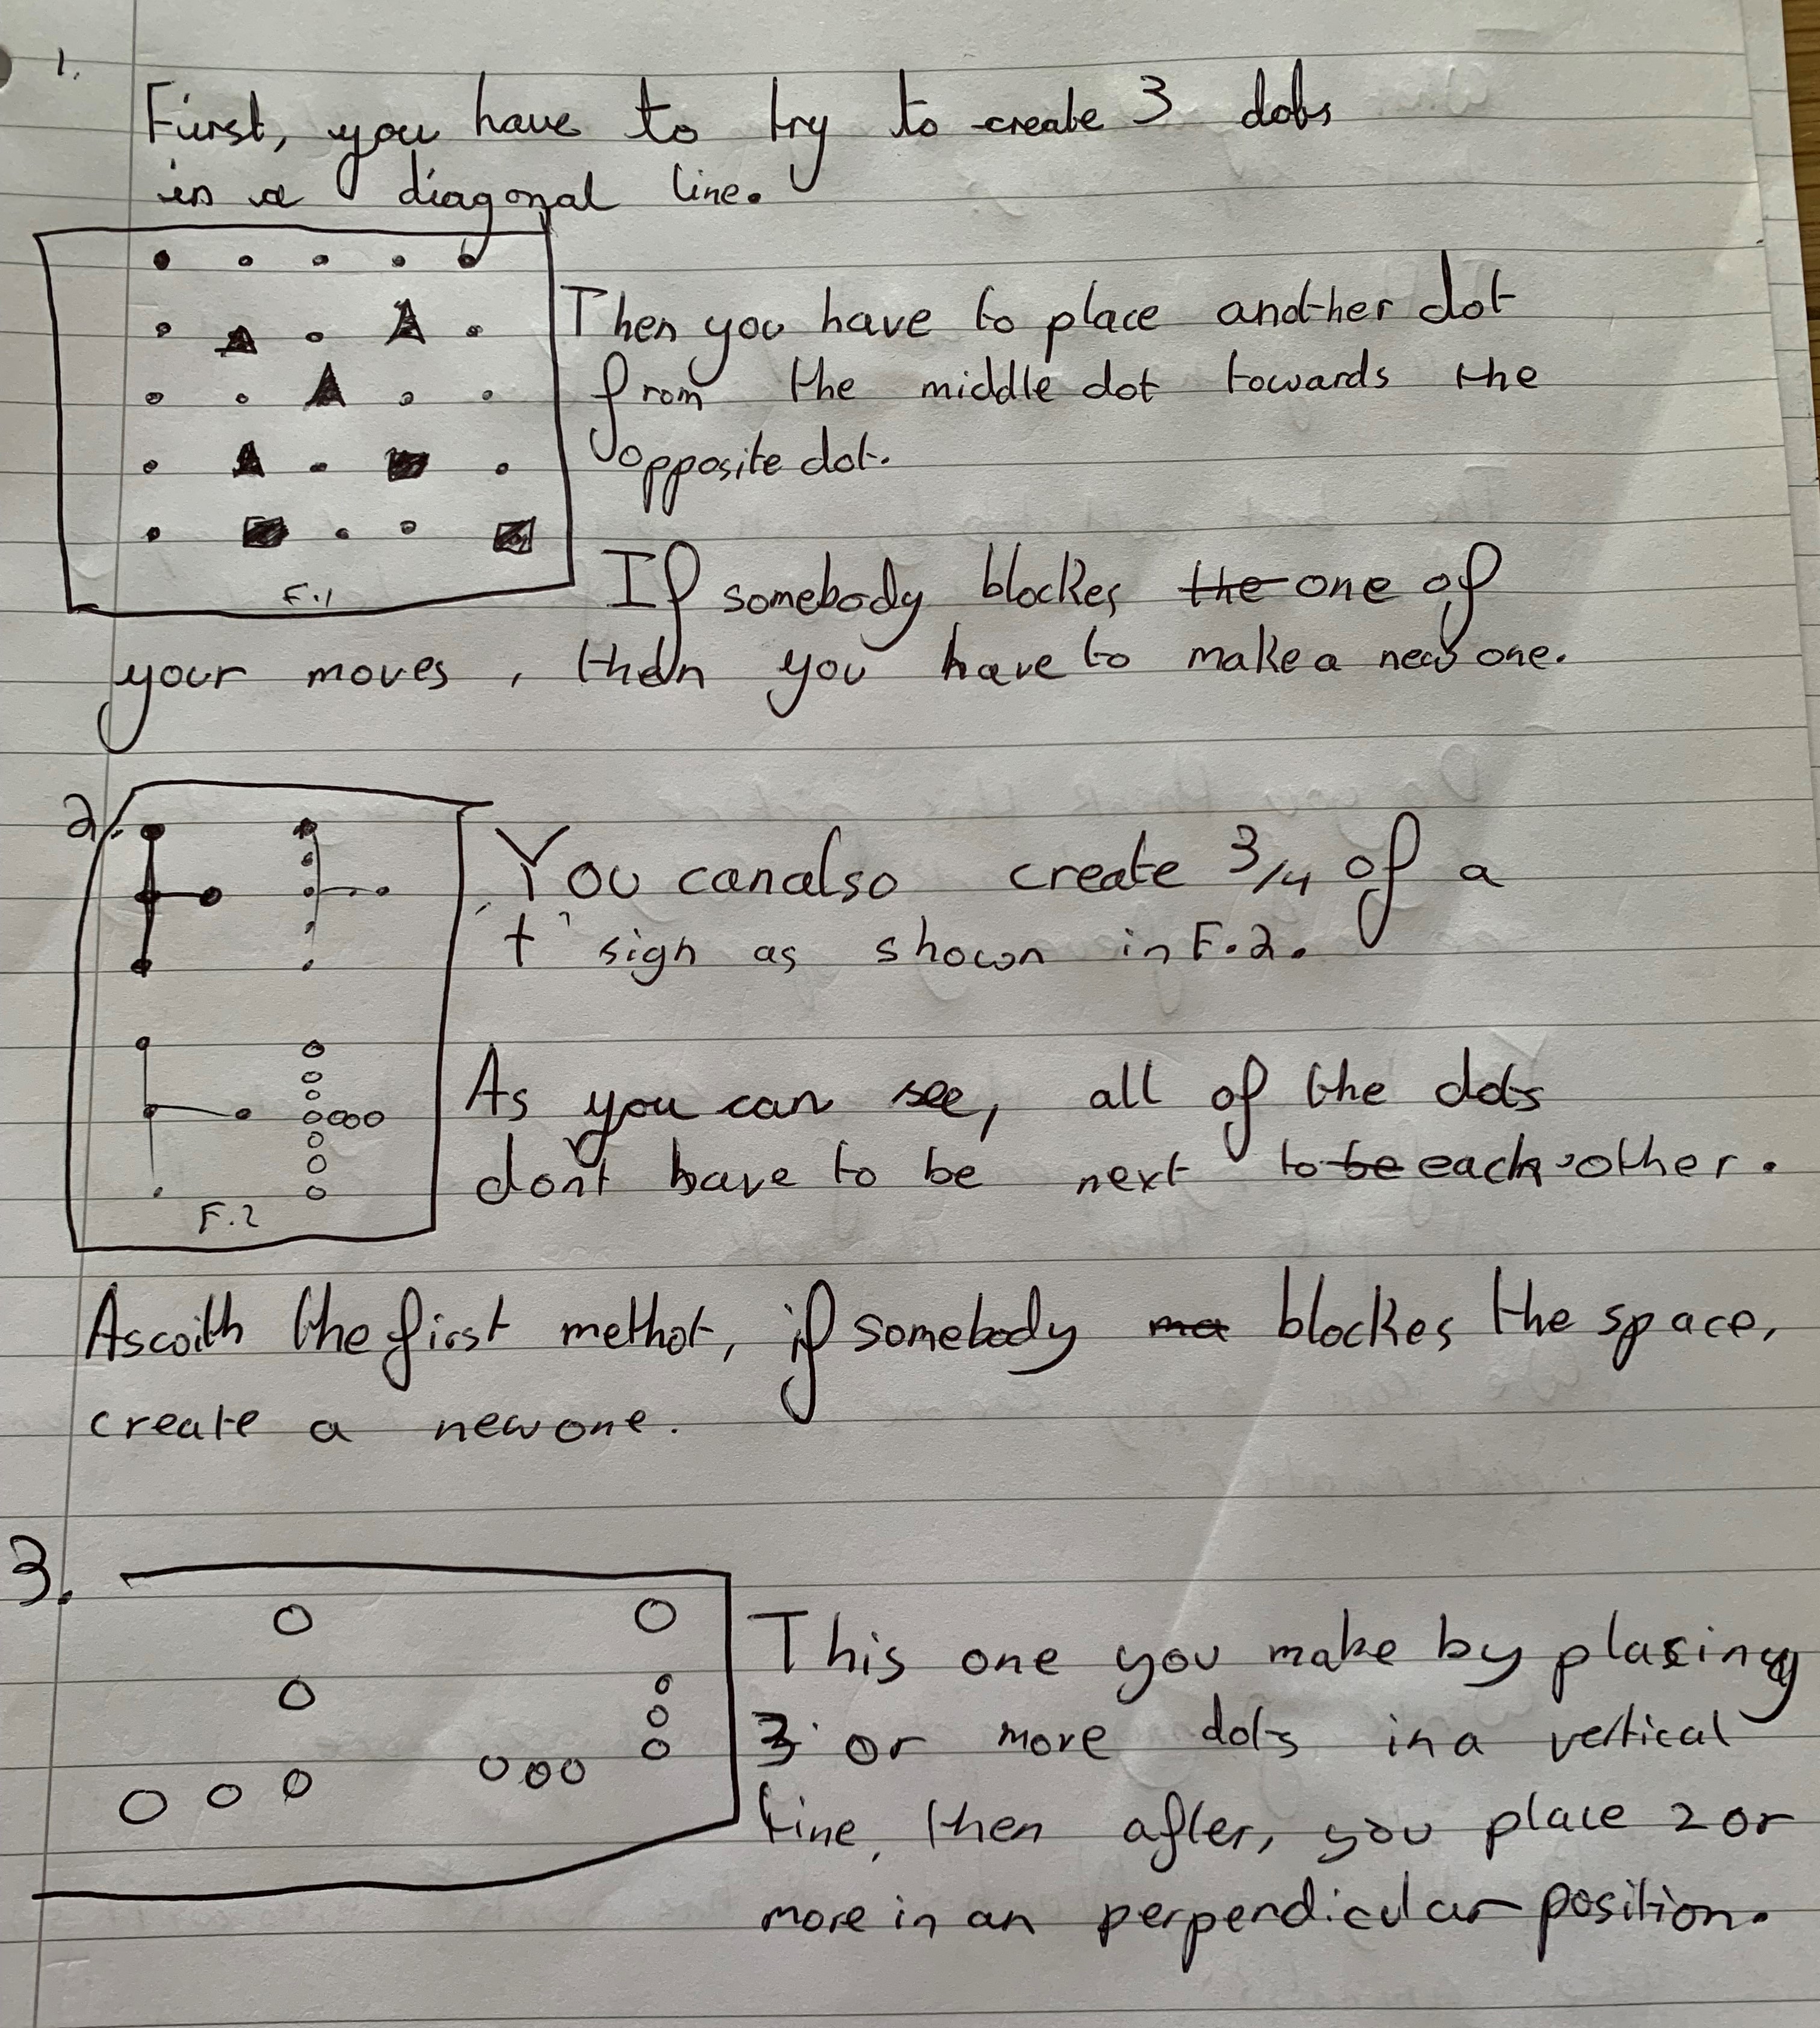 1.
First, you have to try to create 3 dots
in a diagonal line.
Then you have to place another dot
from the middle dot towards the
opposite dot.
F.1
If somebody blockes the one of
your moves, then you have to make a new one.
2.
You can also create 3/4 of a
't' sign as shown in F.2.
As you can see, all of the dots
don't have to be next to be each other.
F.2
As with the first methot, if somebody ma blockes the space,
create a new one.
3.
This one you make by plasing
3 or more dots in a vertical
line, then after, you place 2 or
more in an perpendicular position.